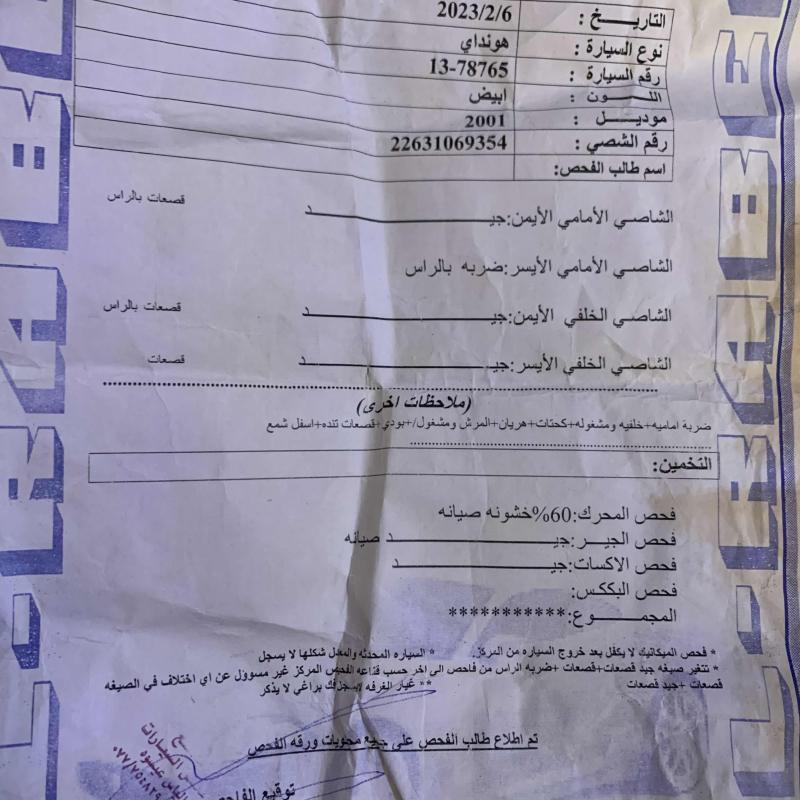 التاريخ : 2023/2/6
نوع السيارة : هونداي
رقم السيارة : 13-78765
اللون : ابيض
موديل : 2001
رقم الشصي : 22631069354
اسم طالب الفحص:
الشاصي الأمامي الأيمن:جيد قصعات بالراس
الشاصي الأمامي الأيسر:ضربه بالراس
الشاصي الخلفي الأيمن:جيد قصعات بالراس
الشاصي الخلفي الأيسر:جيد قصعات
(ملاحظات اخرى)
ضربة اماميه+خلفيه ومشغوله+كحتات+هريان+المرش ومشغول/+بودي+قصعات تنده+اسفل شمع
التخمين:
فحص المحرك:60%خشونه صيانه
فحص الجير:جيد صيانه
فحص الاكسات:جيد
فحص البككس:
المجموع:***********
* فحص الميكانيك لا يكفل بعد خروج السياره من المركز. * السياره المحدثه والمعدل شكلها لا يسجل
* تتغير صبغه جيد قصعات+قصعات +ضربه الراس من فاحص الى اخر حسب قناعه الفحص المركز غير مسوول عن اي اختلاف في الصيغه
قصعات +جيد قصعات ** غيار الغرفه براغي لا يذكر
تم اطلاع طالب الفحص على جميع محويات ورقه الفحص
توقيع